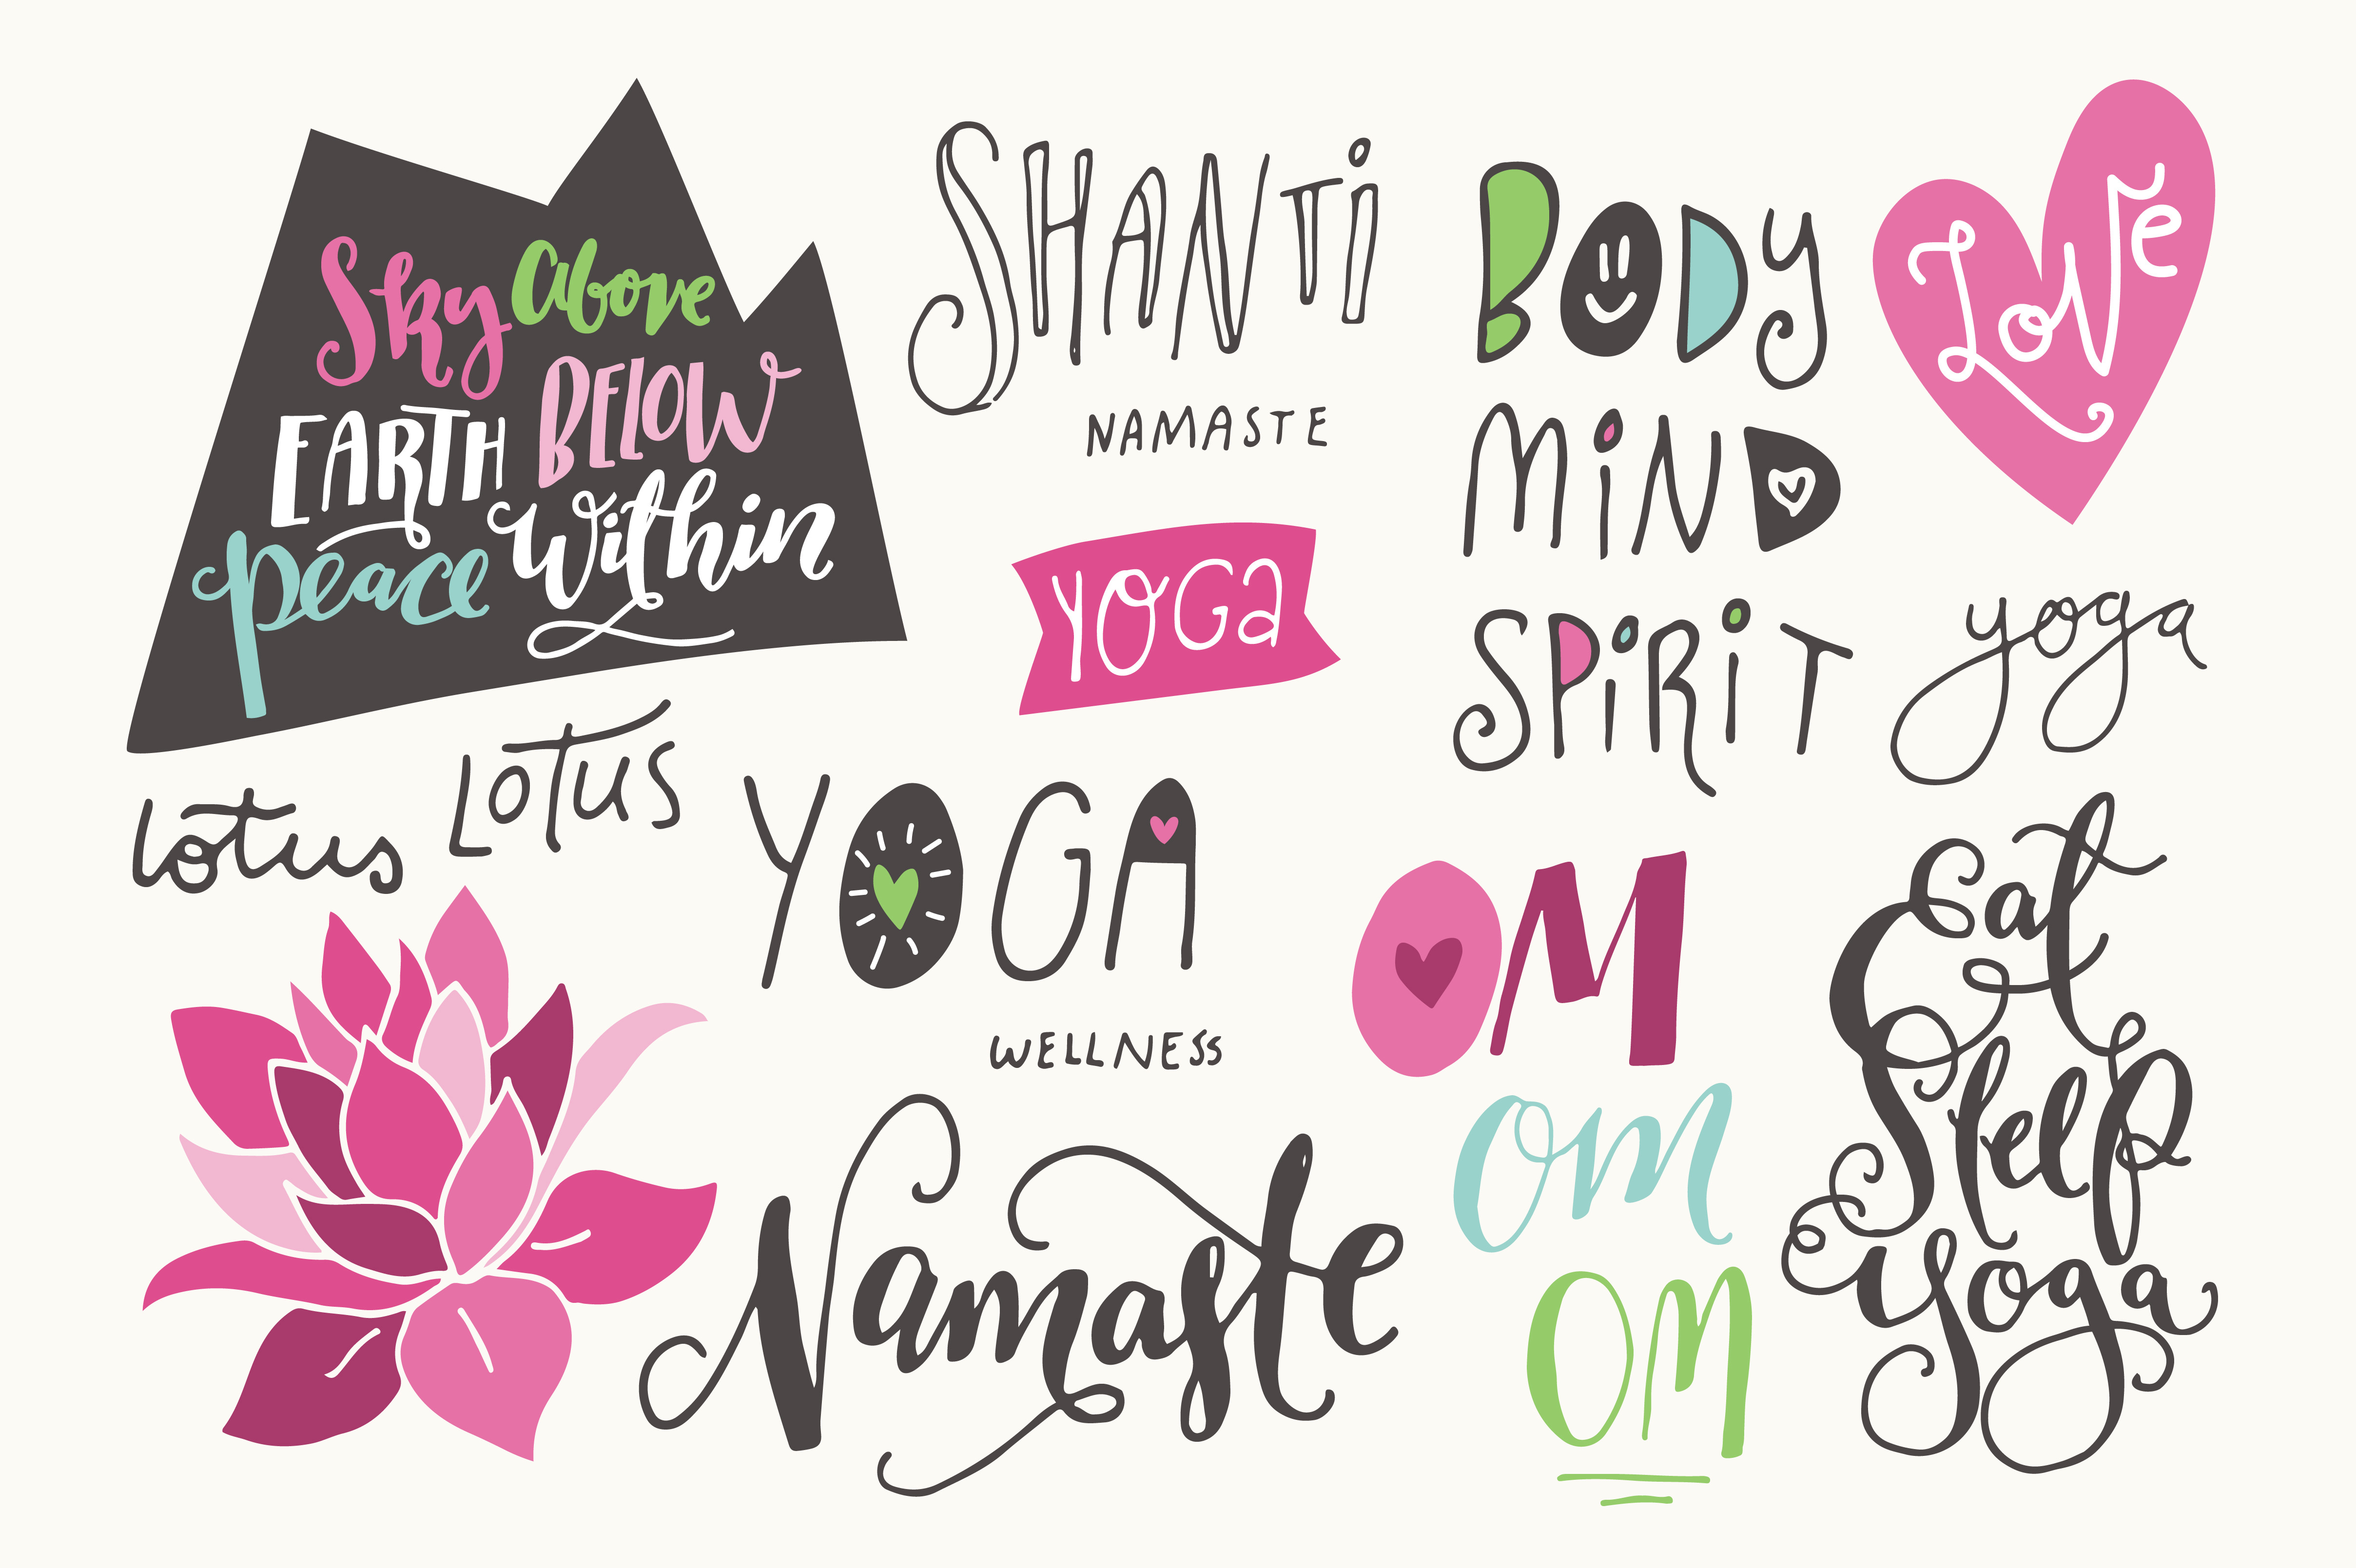 Sky above
EARTH BELOW
peace within
SHANTi
NAMASTE
BODy
MiND
SPiRiT
LovE
YOGa
yoga
lotus
LOTUS
YOGA
WELLNESS
OM
om
om
Namaste
Eat
Sleep
Yoga